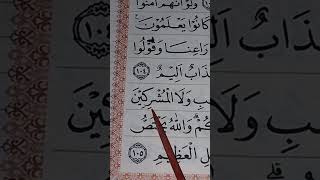 وَلَوْ أَنَّهُمْ آمَنُوا
كَانُوا يَعْلَمُونَ
رَاعِنَا وَقُولُوا
عَذَابٌ أَلِيمٌ ١٠٤
وَلَا الْمُشْرِكِينَ
وَاللَّهُ يَخْتَصُّ
الْعَظِيمِ ١٠٥